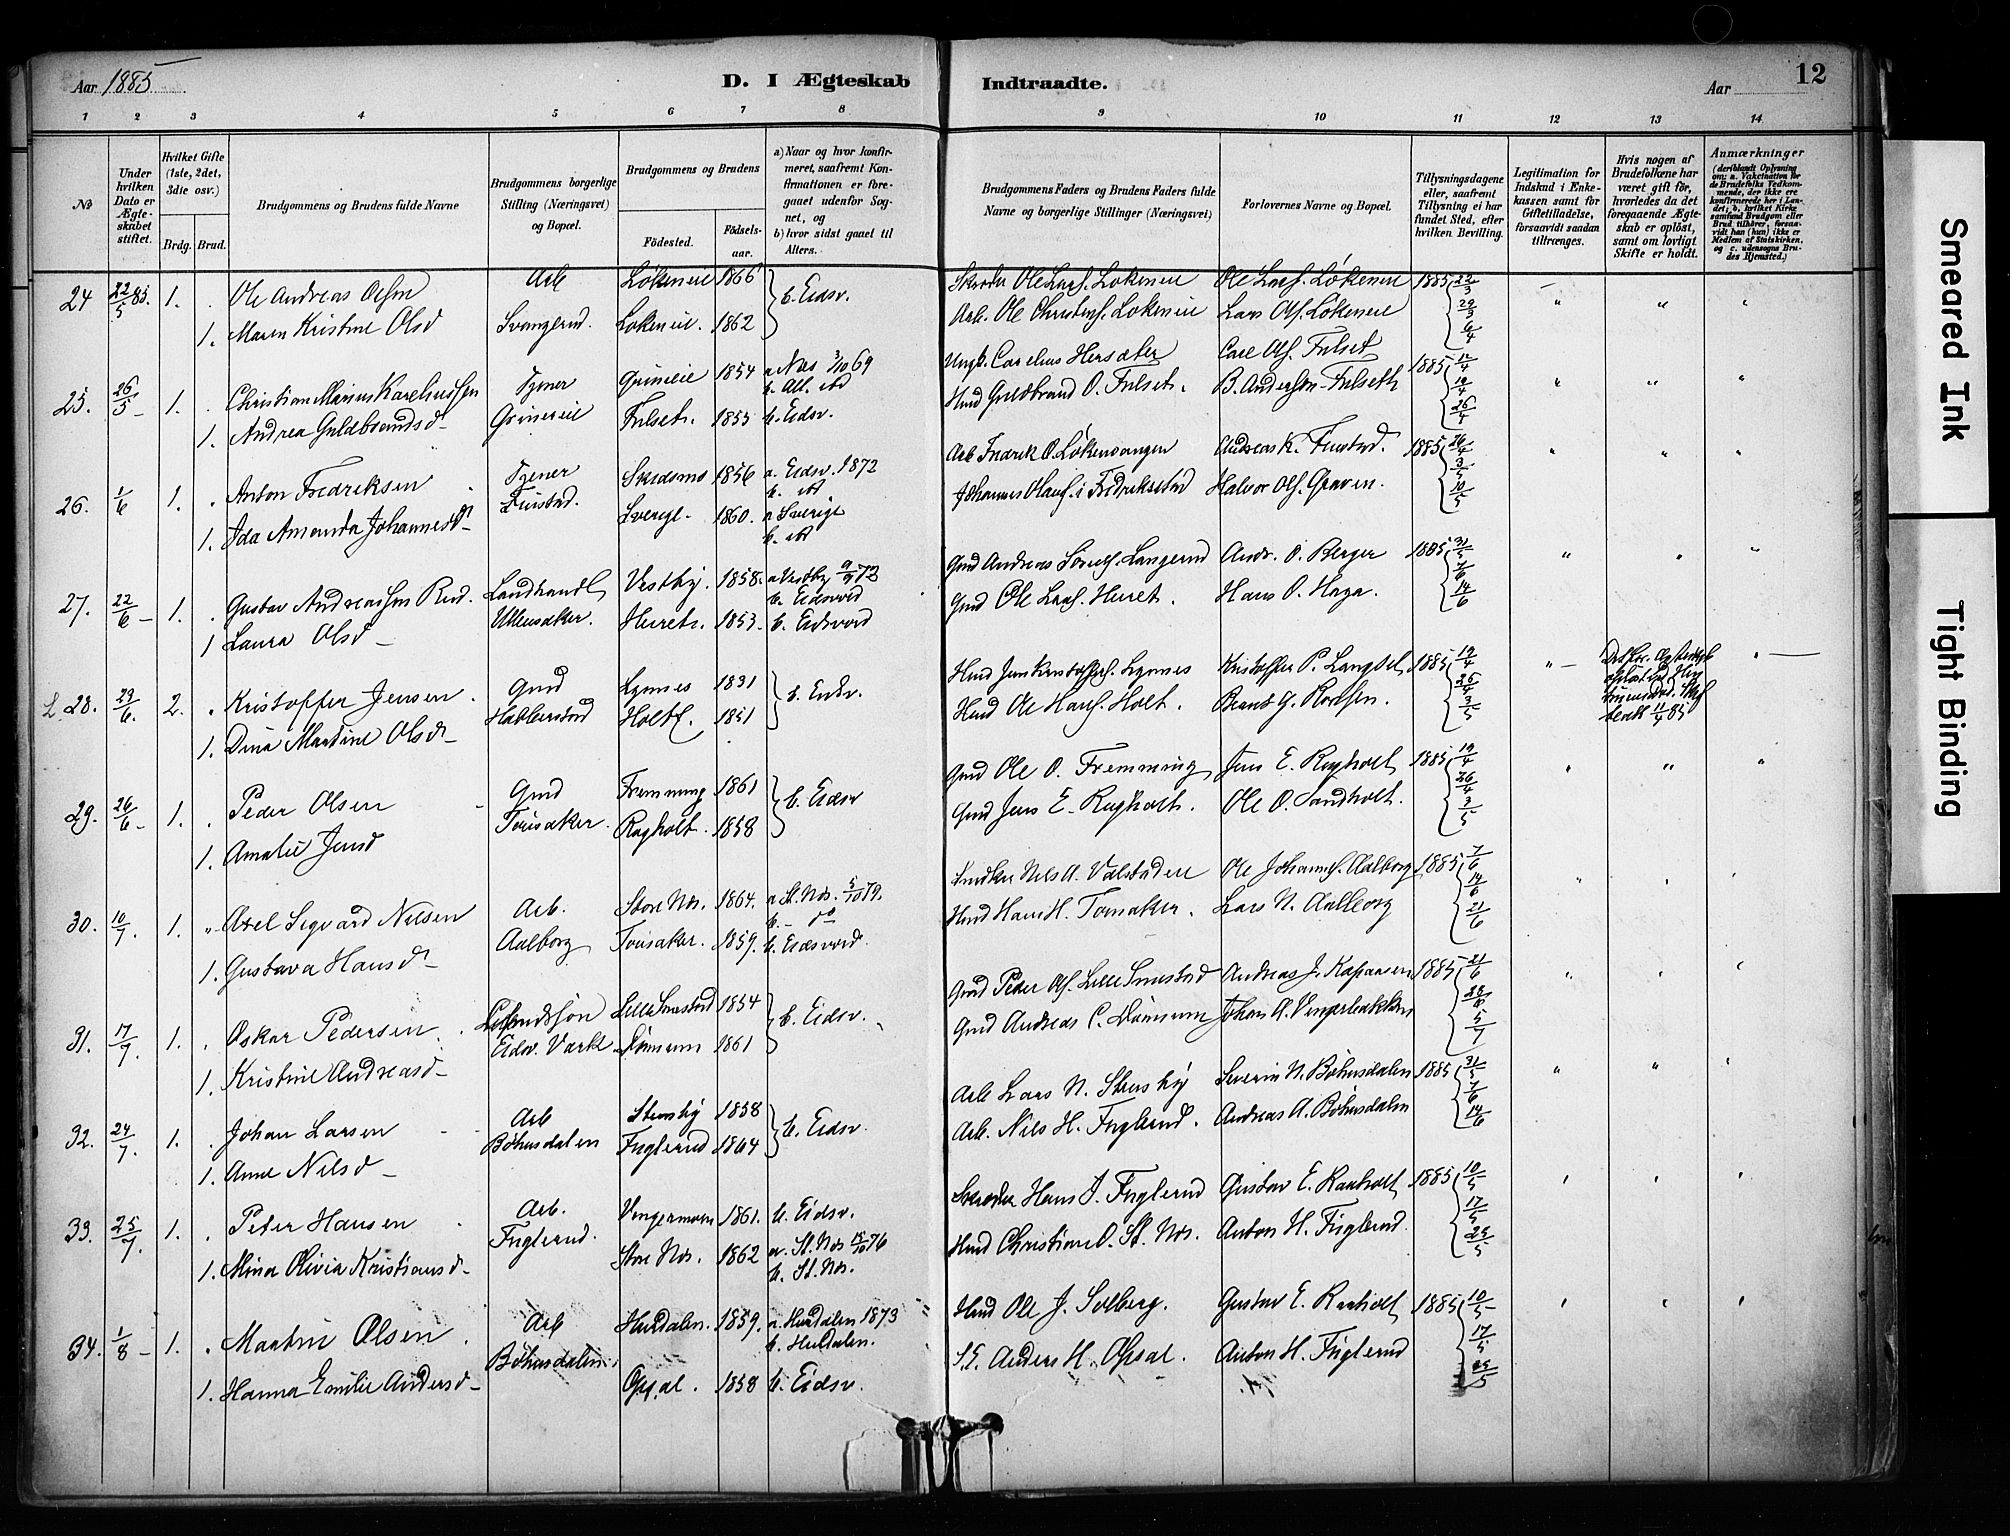 Aar 1885
D. I Ægteskab Indtraadte.
Aar
12
1 2 3 4 5 6 7 8 9 10 11 12 13 14
No
Under hvilken Dato er Ægteskabet stiftet.
Hvilket Gifte (1ste, 2det, 3die osv.)
Brdg. Brud.
Brudgommens og Brudens fulde Navne
Brudgommens borgerlige Stilling (Næringsvei) og Bopæl.
Brudgommens og Brudens
Fødested.
Fødselsaar.
a) Naar og hvor konfirmeret, saafremt Konfirmationen er foregaaet udenfor Sognet, og
b) hvor sidst gaaet til Alters.
Brudgommens Faders og Brudens Faders fulde Navne og borgerlige Stillinger (Næringsvei)
Forlovernes Navne og Bopæl.
Tillysningsdagene eller, saafremt Tillysning ei har fundet Sted, efter hvilken Bevilling.
Legitimation for Indskud i Enkekassen samt for Giftetilladelse, forsaavidt saadan tiltrænges.
Hvis nogen af Brudefolkene har været gift før, hvorledes da det foregaaende Ægteskab er opløst, samt om lovligt Skifte er holdt.
Anmærkninger (deriblandt Oplysning om: a. Vakcination for de Brudefolks Vedkommende, der ikke ere konfirmerede her i Landet; b. hvilket Kirkesamfund Brudgom eller Brud tilhører, forsaavidt han (hun) ikke er Medlem af Statskirken, og c. udensogns Brudes Hjemsted.)
24 22/5 85. 1. Ole Andreas Olsen Arb Løkeneie 1866 b. Eidsv. Skræder Ole Lars. Løkeneie Ole Lars. Løkeneie 1885 22/3
1. Maren Kristine Olsd Løkeneie. 1862 Arb. Ole Christens. Løkeneie Lars Ols. Løkeneie 29/3 6/4
25. 26/5 1. Christian Marius Karelius­sen Tjener Grimeie 1854 a Næs 3/10 69 Carelius Carl Ols. Fulset 1885 12/4
1. Andrea Guldbrandsd Grimeeie Fulset. 1855 b. Eidsv. Hmd Guldbrand O. Fulset. B. Anderson Fulseth 19/4 26/4
26. 1/6 1. Anton Fredriksen Tjener Skedsmo 1856 a. Eidsv. 1872 Arb Fredrik O. Løkensvangen Andreas K. Finstad. 1885 26/4
1. Ida Amanda Johannesd Finstad. Sverige. 1860. a Sverige Johannes Olaus. i Fredrikstad Halvor Ols. Graven. 3/5 10/5
27. 22/6 1. Gustav Andreassen Rud. Landhandl Vestby. 1858. a Vestby 9/4 72 b. Eidsvold Gmd Andreas Langerud Andr. O. Berger 1885 31/5
1 Laura Olsd Ullensaker. Huret. 1853. b. Eidsvold Gmd Ole Lars. Huret. Hans O. Haga. 7/6 14/6
28. 23/6. 2. Kristoffer Jensen Gmd Lynnes 1831 b. Eidsv. Hmd Jens Kristoffers. Lynnes Kristoffer P. Langset 1885 19/4
1. Dina Martine Olsd Holt. 1851 Hmd Ole Hans. Holt. 26/4 3/5
29. 26/6 1. Peder Olsen Gmd Fremming 1861 b. Eidsv Gmd Ole O. Fremming Jens E. Ragholt 1885 19/4
1. Amalie Jensd Tønsaker. Ragholt. 1858 Gmd Jens E. Ragholt. Ole O. Sandholt. 26/4 3/5
30. 10/7. 1. Axel Sigvard Nilsen Arb. Store Næs. 1864. a St. Næs. 5/10 79. Snedker Nils A. Valstadeie Ole Johannes. Aalborg 1885 7/6
1. Gustava Hansd Aalborg Tønsaker. 1859. b. Eidsvold. Hmd Hans H. Tønsaker. Lars N. Aalborg 14/6 21/6
31. 17/7. 1. Oskar Pedersen Lille Smestad 1854 b. Eidsv. Gmd Peder Ols. Lille Smestad Andreas J. Kapaasen 1885 21/6
1. Kristine Andreasd Eidsv. Værk Dømum 1861 Gmd Andreas C. Dømum Johan A. Vengerbakken 28/6 5/7
32. 24/7. 1. Johan Larsen Arb Stensby 1858 b. Eidsv. Arb Lars N. Stensby Severin N. Bøhnsdalen 1885 31/5
1. Anne Nilsd Bøhnsdalen Fuglerud 1864 Arb. Nils H. Fuglerud. Andreas A. Bøhnsdalen 7/6 14/6
33. 25/7. 1. Peter Hansen Arb. Vengermoen 1861. b. Eidsv. Skræder Hans J. Fuglerud Gustav E. Raaholt 1885 10/5
1. Mina Olivia Kristiansd Fuglerud. Store Næs. 1862 a. St. Næs 15/10 76 b. St. Næs. Hmd Christian O. St. Næs. Anton H. Fuglerud. 17/5 25/5
34. 1/8 1. Martin Olsen Arb Hurdalen. 1859. a. Hurdalen 1873 b. Hurdalen. Hmd Ole J. Solberg. Gustav E. Raaholt 1885 10/5
1. Hanna Emilie Andersd Bøhnsdalen. Opsal. 1858 b. Eidsv. S.E. Anders H. Opsal. Anton H. Fuglerud 17/5 25/5
Smeared Ink
Tight Binding